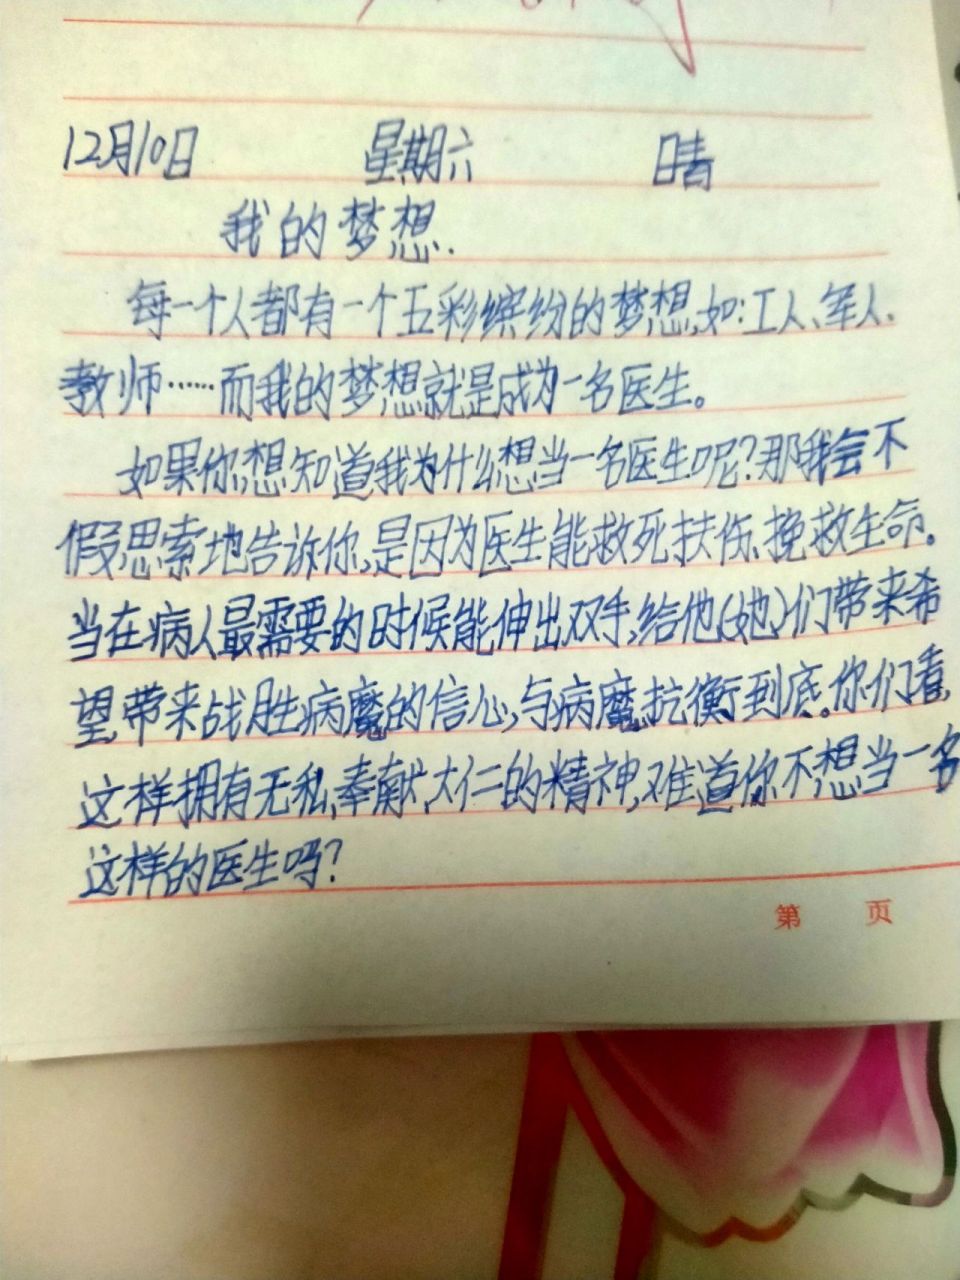 12月10日 星期六 晴
我的梦想.
每一个人都有一个五彩缤纷的梦想,如:工人、军人、
教师……而我的梦想就是成为一名医生。
如果你想知道我为什么想当一名医生呢?那我会不
假思索地告诉你,是因为医生能救死扶伤、挽救生命。
当在病人最需要的时候能伸出双手,给他(她)们带来希
望,带来战胜病魔的信心,与病魔抗衡到底。你们看,
这样拥有无私、奉献、大仁的精神,难道你不想当一名
这样的医生吗?
第 页